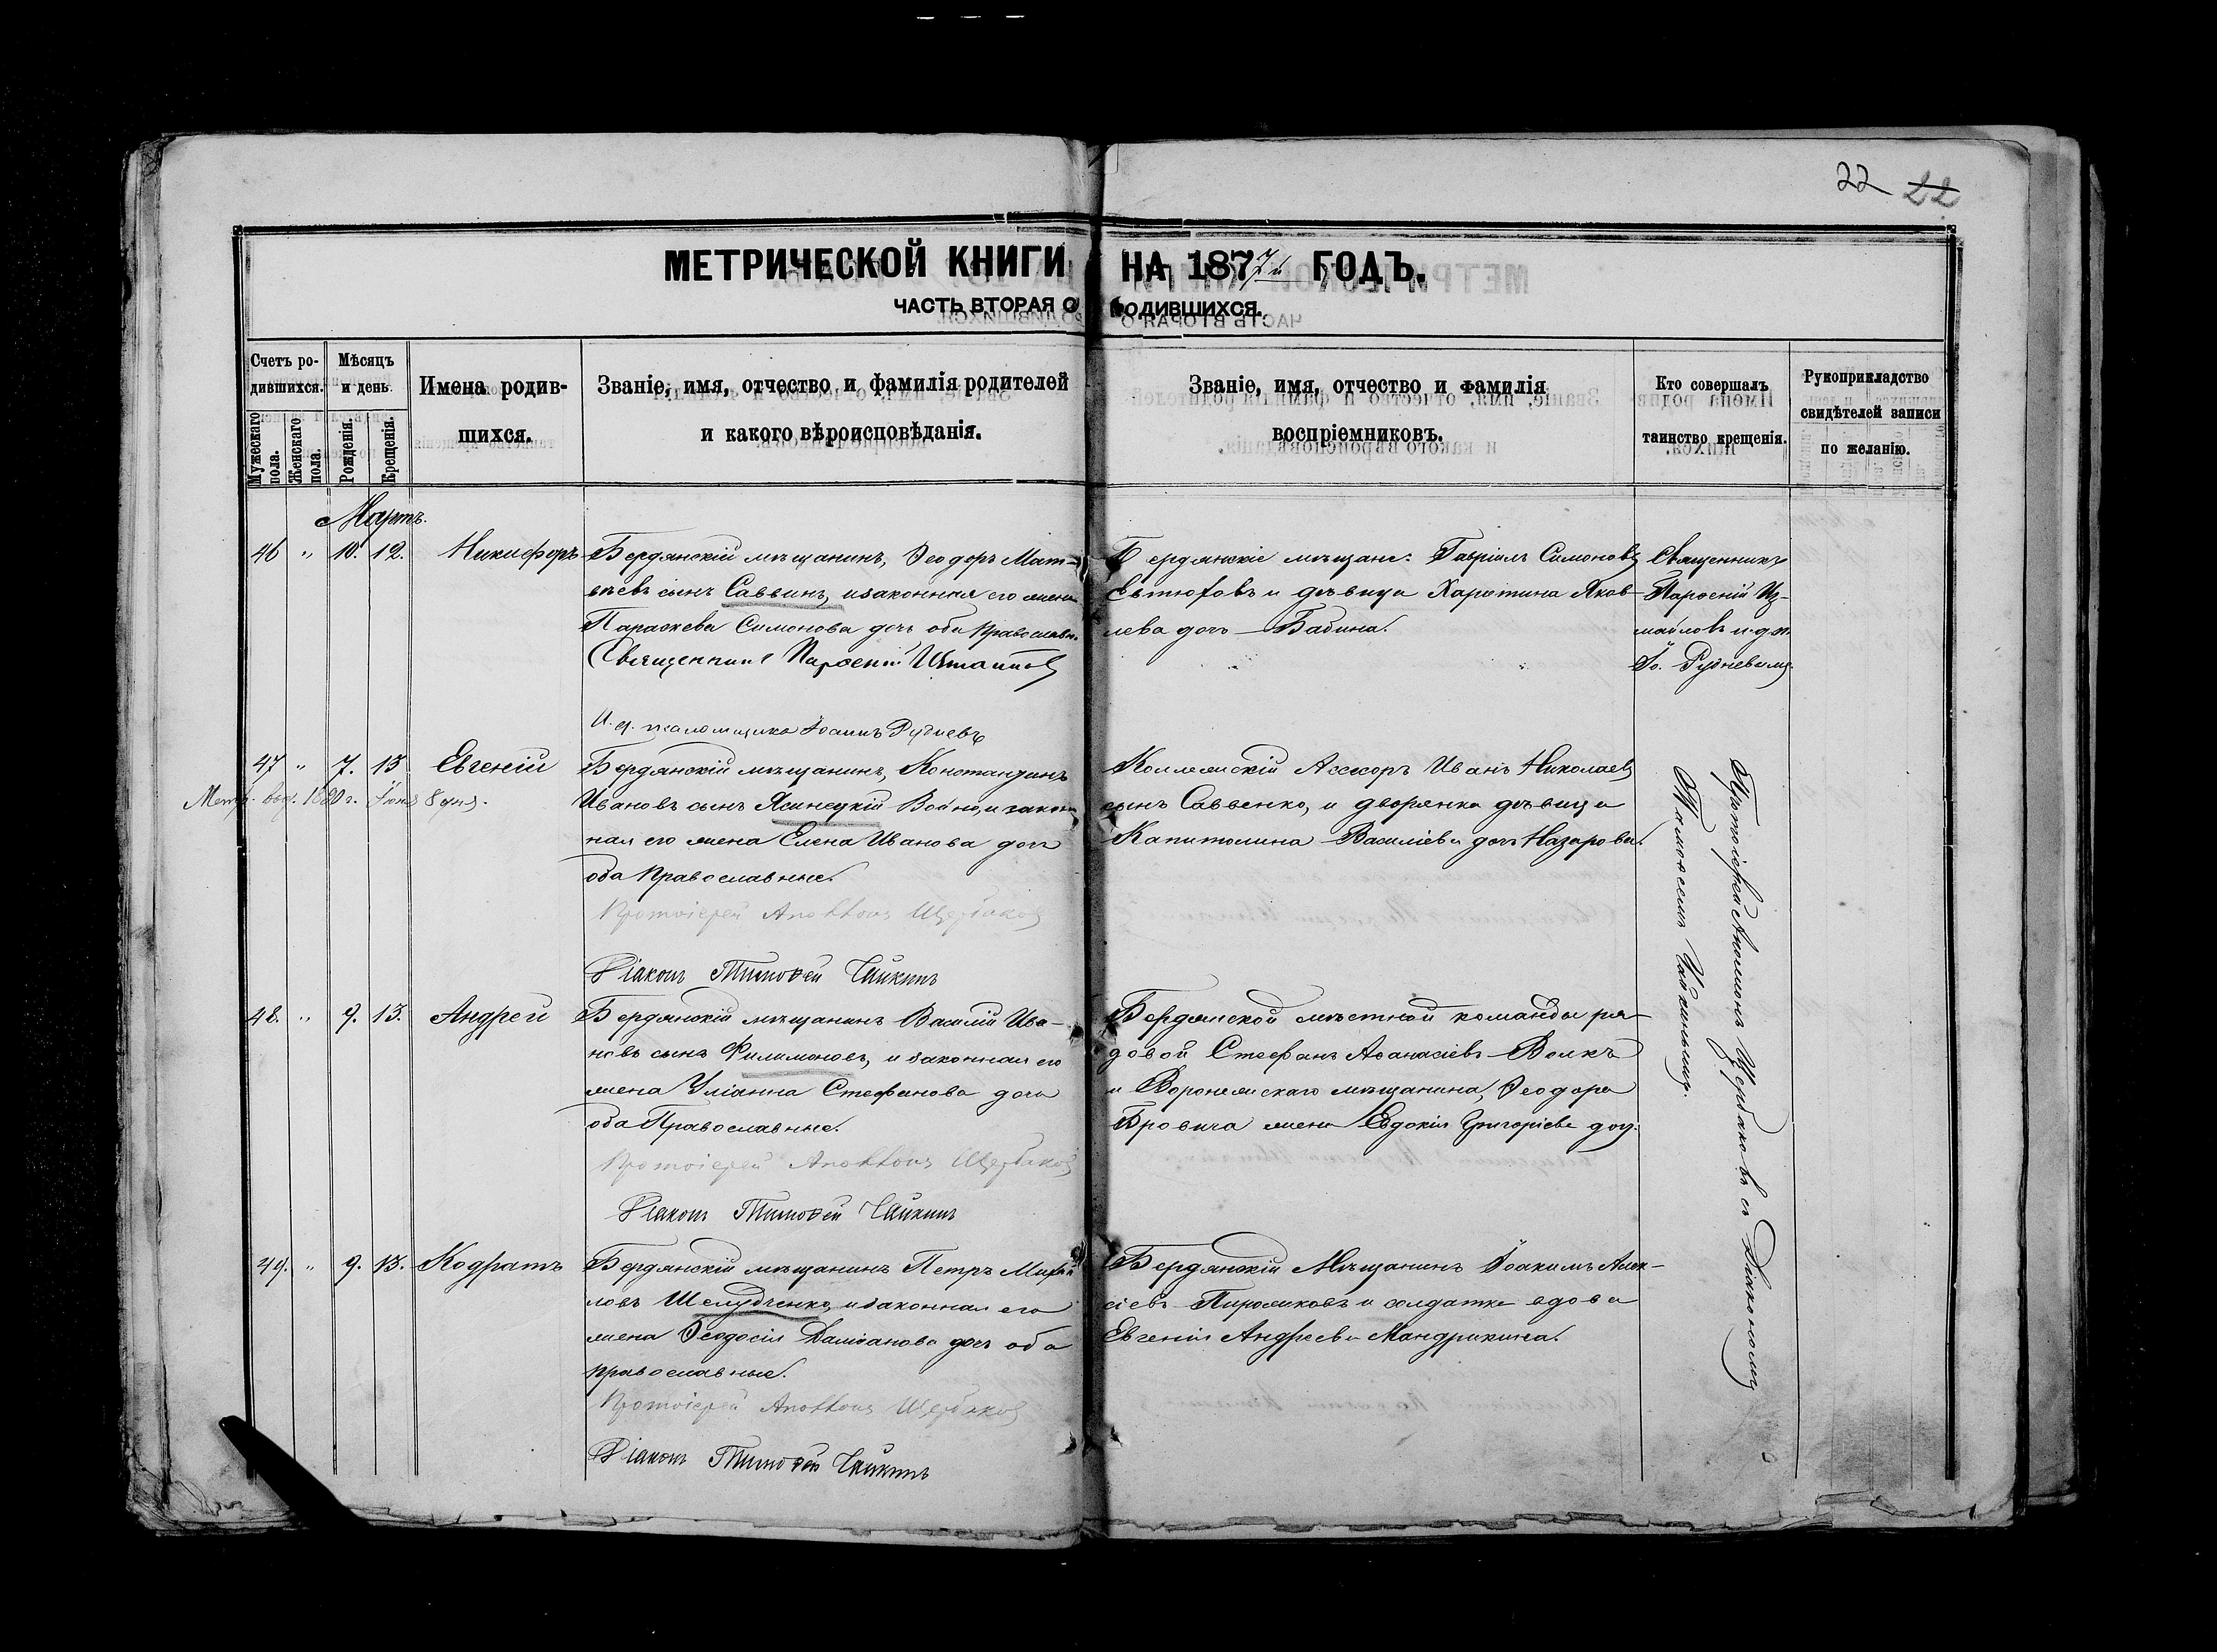 22 22
МЕТРИЧЕСКОЙ КНИГИ НА 1877й ГОДЪ.
ЧАСТЬ ВТОРАЯ О РОДИВШИХСЯ.
Счетъ ро-
дившихся.
Мужескаго пола.
Женскаго пола.
Мѣсяцъ
и день.
Рожденія.
Крещенія.
Имена родив-
шихся.
Званіе, имя, отчество и фамилія родителей
и какого вѣроисповѣданія.
Званіе, имя, отчество и фамилія
воспріемниковъ.
Кто совершалъ
таинство крещенія.
Рукоприкладство
свидѣтелей записи
по желанію.
Мартъ.
46 " 10. 12. Никифоръ
Бердянскій мѣщанинъ, Ѳеодоръ Мат-
вѣевъ сынъ Саввинъ, и законная его жена
Параскева Симонова дочь оба Православн.
Священникъ Парѳеній Измайловъ
И. д. псаломщика Іоаннъ Рудневъ
Бердянскіе мѣщане: Гавріилъ Симоновъ
и дѣвица Харитина Яков-
лева дочь Бабина.
Священникъ
Парѳеній Из-
майловъ и. д. п.
Іо. Рудневымъ.
47 " 7. 13. Евгеній
Метр. выд. 1880 г. Іюня 8 дня.
Бердянскій мѣщанинъ, Константинъ
Ивановъ сынъ Ясинецкій Войно, и закон
ная его жена Елена Иванова дочь
оба Православные.
Протоіерей Аполлонъ Щербаковъ
Діаконъ Тимоѳей Чайкинъ
Коллежскій Асессоръ Иванъ Николаевъ
сынъ Саввенко, и дворянка дѣвица
Капитолина Василіева дочь Назарова.
Протоіерей Аполлонъ Щербаковъ съ Діакономъ
Тимоѳеемъ Чайкинымъ.
48. " 9. 13. Андрей
Бердянскій мѣщанинъ Василій Ива-
новъ сынъ Филимоновъ, и законная его
жена Уліанна Стефанова дочь
оба Православные.
Протоіерей Аполлонъ Щербаковъ
Діаконъ Тимоѳей Чайкинъ
Бердянской мѣстной команды ря-
довой Стефанъ Аѳанасіевъ Волкъ
и Воронежскаго мѣщанина, Ѳеодора
Бровича жена Евдокія Григоріева доч.
49. " 9. 13. Кодратъ
Бердянскій мѣщанинъ Петръ Михаи
ловъ Шелудченко, и законная его
жена Ѳеодосія Даміанова дочь оба
православные.
Протоіерей Аполлонъ Щербаковъ
Діаконъ Тимоѳей Чайкинъ
Бердянскій Мѣщанинъ Іоакимъ Алек-
сіевъ Пирожковъ и солдатка вдова
Евгенія Андреева Мандрикина.